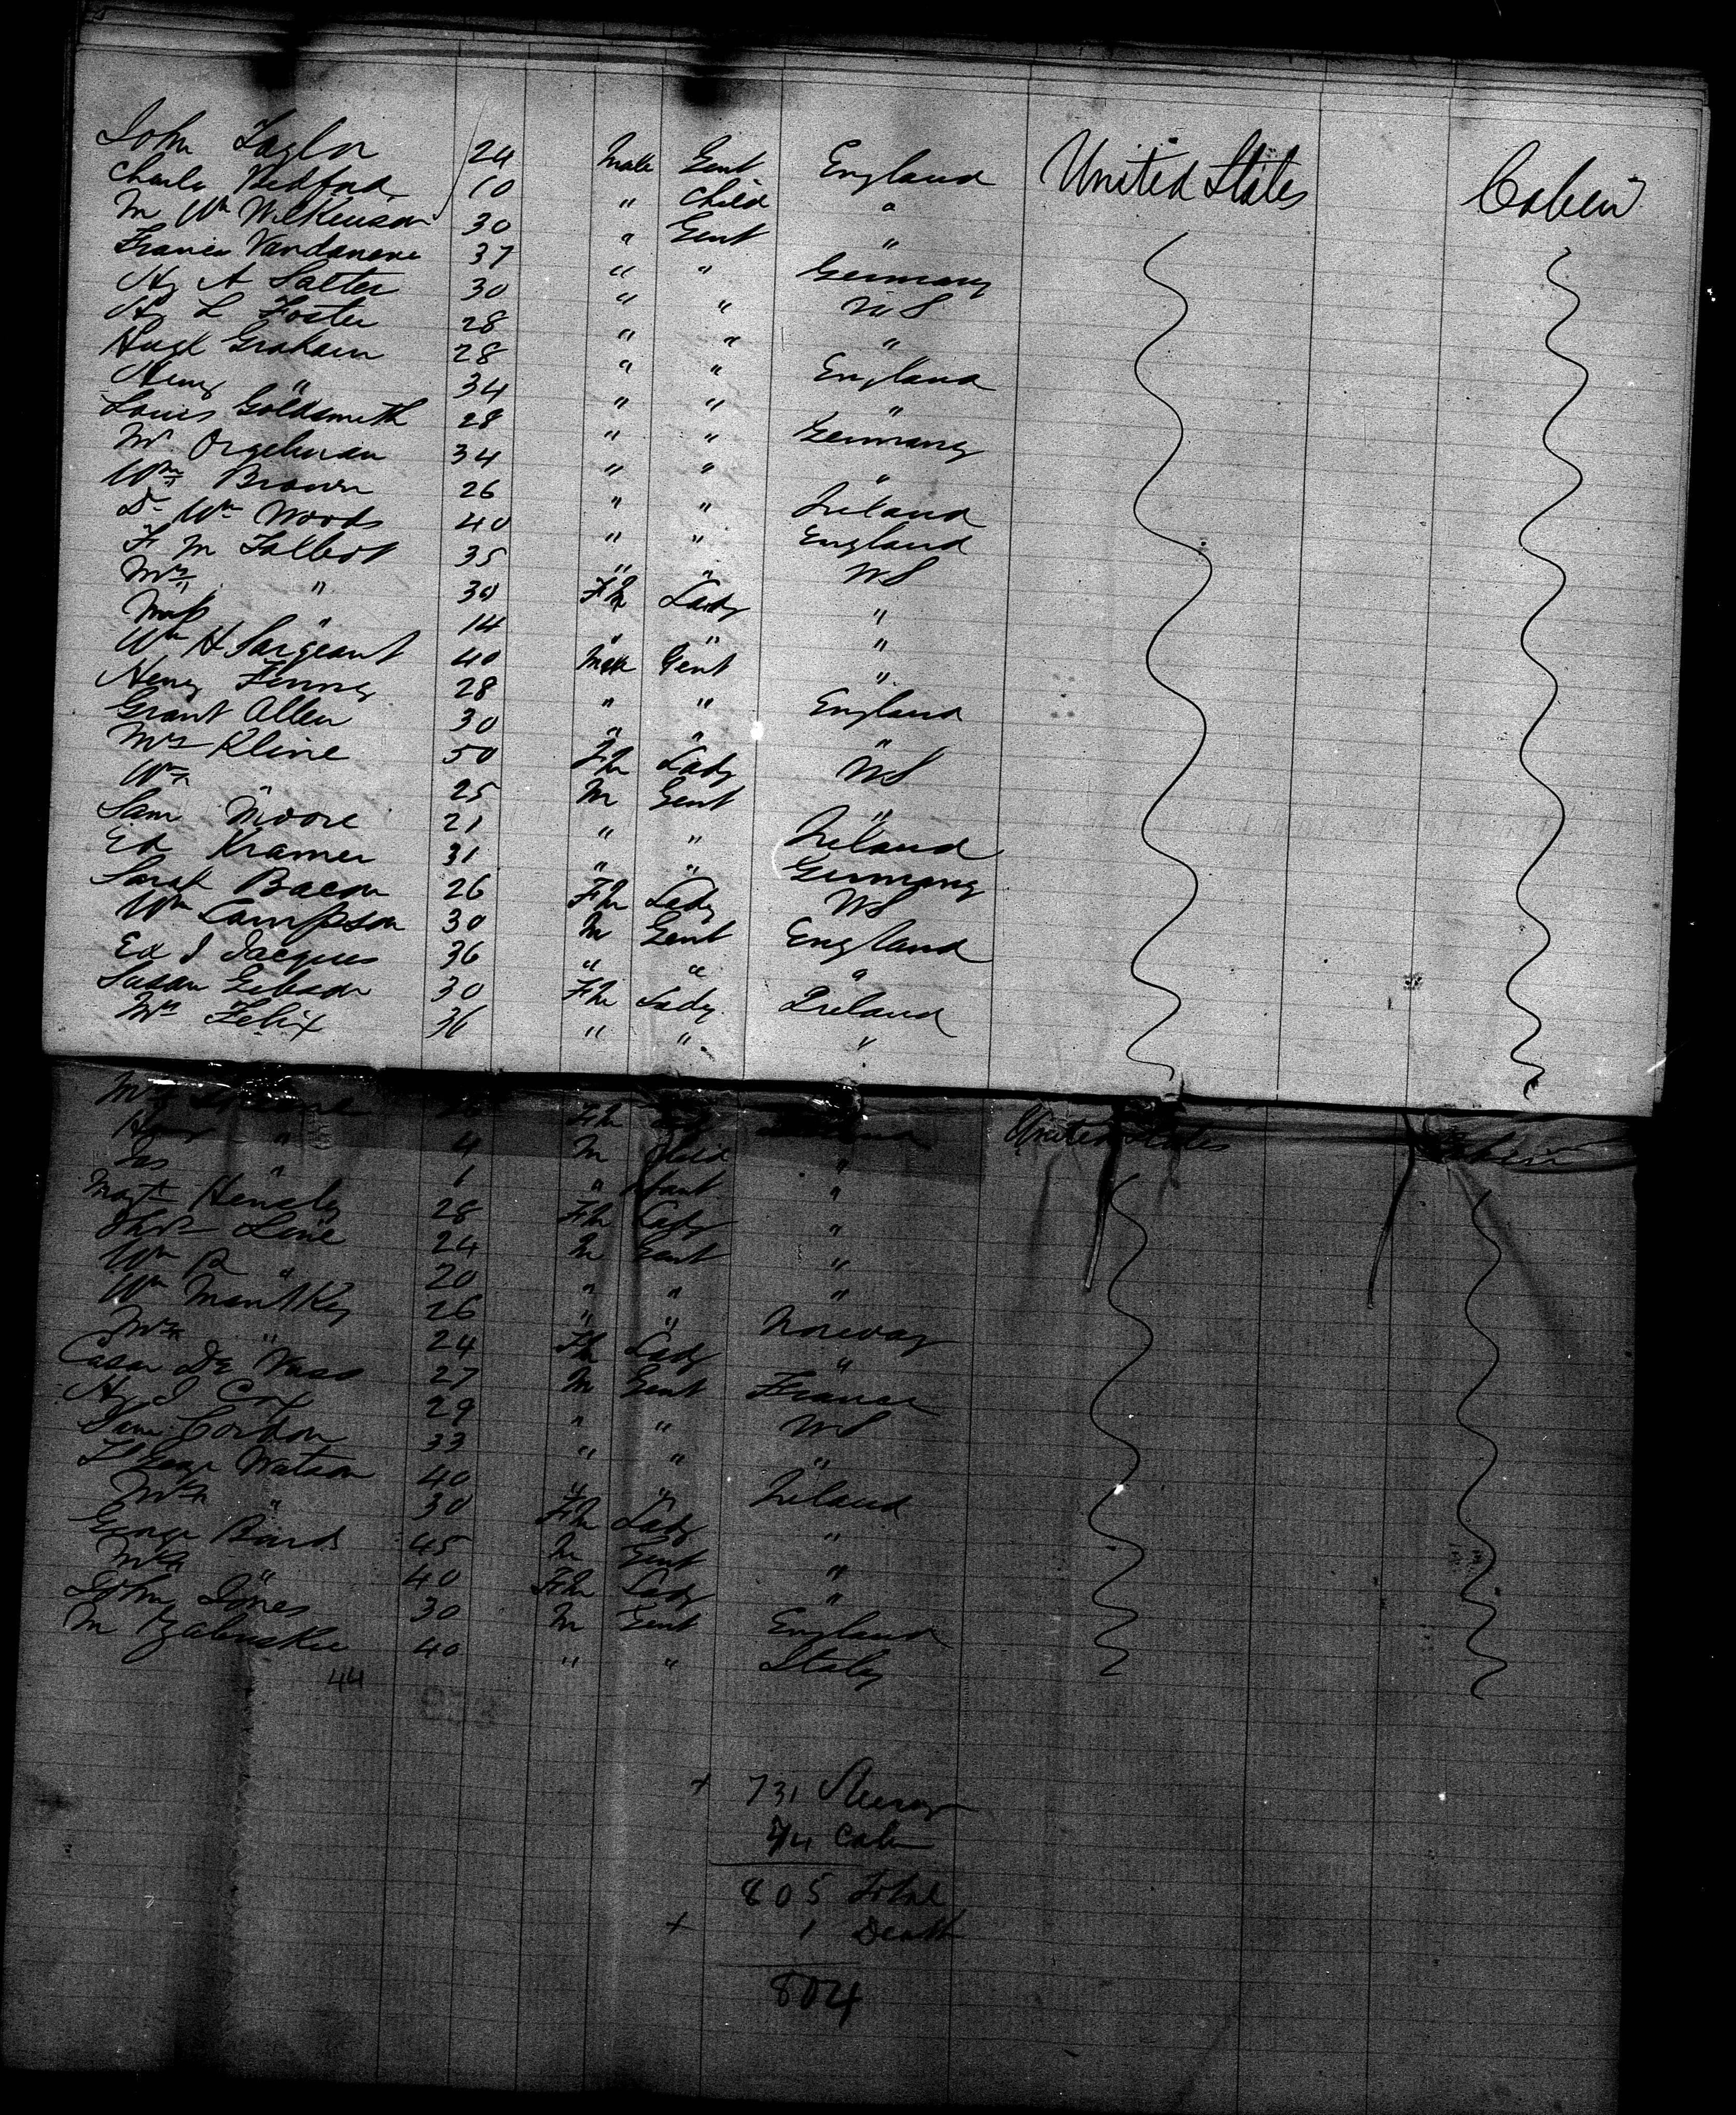 John Taylor 24 Male Gent England United States Cabin
Charles Bedford 10 " Child "
M Wm Wilkinson 30 " Gent "
Francis 37 " " Germany
Hy A Salter 30 " " U S
Hy L Foster 28 " " "
Hugh Graham 28 " " England
Henry " 34 " " "
Louis Goldsmith 28 " " Germany
Mr 34 " " "
Wm Brown 26 " " Ireland
Dr Wm Woods 40 " " England
F M Talbot 35 " " U S
Mrs " 30 Fm Lady "
" 14 " " "
Wm H Sargeant 40 Male Gent "
Henry 28 " " England
Grant Allen 30 " " "
Mrs Kline 50 Fm Lady U S
Wm " 25 M Gent "
Sam Moore 21 " " Ireland
Ed Kramer 31 " " Germany
Sarah Bacon 26 Fm Lady U S
Wm Sampson 30 M Gent England
Ed J Jacques 36 " " "
Susan Gibson 30 Fm Lady Ireland
Mrs Felix 36 " " "
Mrs Fm United States Cabin
" 4 M Child "
Jas " 1 " Infant "
Magt Hensley 28 Fm Lady "
Thos Line 24 M Gent "
Wm R " 20 " " "
Wm 26 " " Norway
Mrs " 24 Fm Lady "
27 M Gent France
Hy J Cox 29 " " U S
Sam Gordon 33 " " "
George Watson 40 " " Ireland
Mrs " 30 Fm Lady "
George 45 M Gent "
Mrs " 40 Fm Lady "
John Jones 30 M Gent England
M 40 " " Italy
44
+ 731 Steerage
74 Cabin
805 Total
+ 1 Death
804